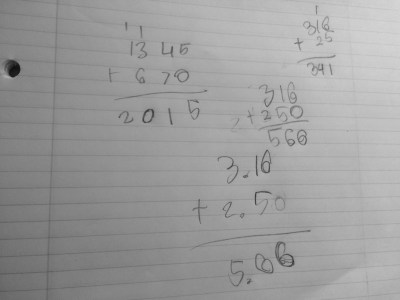 1 1
1345
+ 670
2015
1
316
+ 25
341
316
+250
566
3.16
+ 2.50
5.66